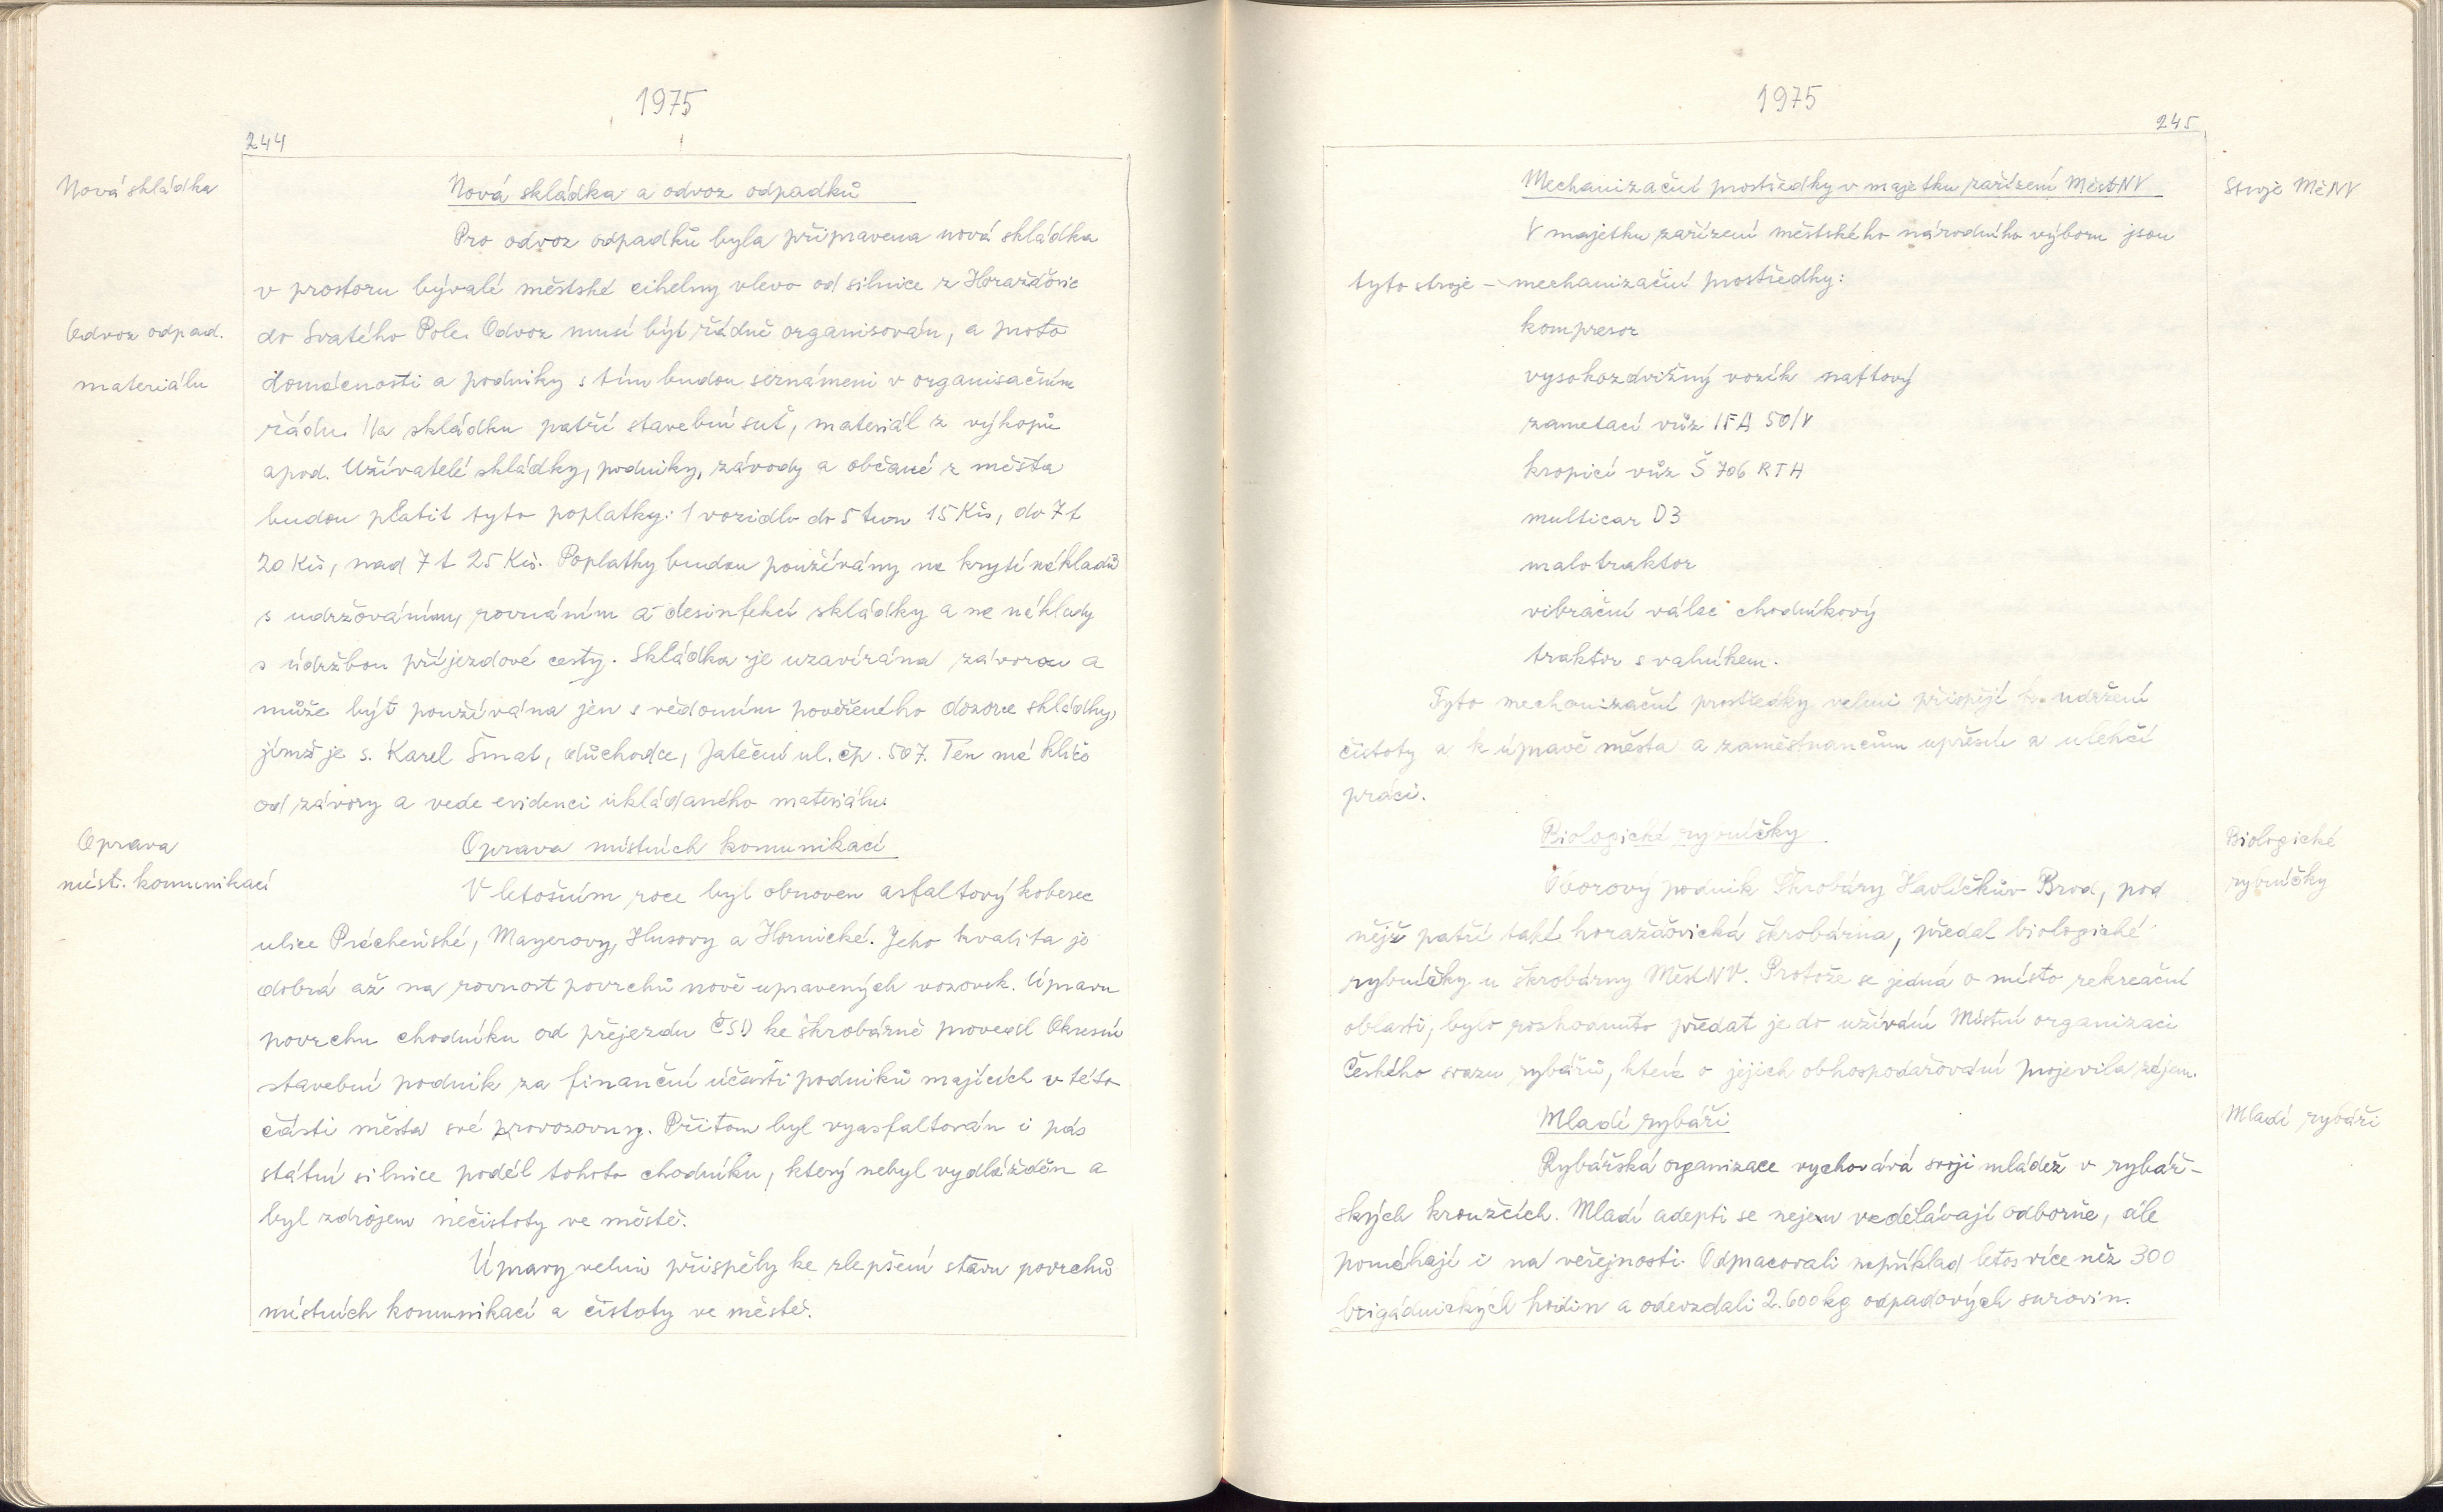 1975
244
Nová skládka
Nová skládka a odvoz odpadků
Pro odvoz odpadků byla připravena nová skládka
v prostoru bývalé městské cihelny vlevo od silnice z Horažďovic
Odvoz odpad.
do Svatého Pole. Odvoz musí být řádně organisován, a proto
materiálu
domácnosti a podniky s tím budou seznámeni v organisačním
řádu. Na skládku patří stavební suť, materiál z výkopů
apod. Uživatelé skládky, podniky, závody a občané z města
budou platit tyto poplatky: 1 vozidlo do 5 tun 15 Kčs, do 7 t
20 Kčs, nad 7 t 25 Kčs. Poplatky budou používány na krytí nákladů
s udržováním, rovnáním a desinfekcí skládky a na náklady
s údržbou příjezdové cesty. Skládka je uzavírána závorou a
může být používána jen s vědomím pověřeného dozorce skládky,
jímž je s. Karel Šmat, důchodce, Jateční ul. čp. 507. Ten má klíč
od závory a vede evidenci ukládaného materiálu.
Oprava
Oprava místních komunikací
míst. komunikací
V letošním roce byl obnoven asfaltový koberec
ulice Prácheňské, Mayerovy, Husovy a Hornické. Jeho kvalita je
dobrá až na rovnost povrchů nově upravených vozovek. Úpravu
povrchu chodníku od přejezdu ČSD ke škrobárně provedl Okresní
stavební podnik za finanční účasti podniků majících v této
části města své provozovny. Přitom byl vyasfaltován i pás
státní silnice podél tohoto chodníku, který nebyl vydlážděn a
byl zdrojem nečistoty ve městě.
Úpravy velmi přispěly ke zlepšení stavu povrchů
místních komunikací a čistoty ve městě.
1975
245
Mechanizační prostředky v majetku zařízení MěstNV
Stroje MěNV
V majetku zařízení městského národního výboru jsou
tyto stroje - mechanizační prostředky:
kompresor
vysokozdvižný vozík naftový
zametací vůz IFA 50/V
kropicí vůz Š 706 RTH
multicar D3
malotraktor
vibrační válec chodníkový
traktor s valníkem.
Tyto mechanizační prostředky velmi přispějí k udržení
čistoty a k úpravě města a zaměstnancům a ulehčí
práci.
Biologické rybníčky
Biologické
rybníčky
Oborový podnik Škrobárny Havlíčkův Brod, pod
nějž patří také horažďovická škrobárna, předal biologické
rybníčky u škrobárny MěstNV. Protože se jedná o místo rekreační
oblasti, bylo rozhodnuto předat je do užívání Místní organizaci
Českého svazu rybářů, která o jejich obhospodařování projevila zájem.
Mladí rybáři
Mladí rybáři
Rybářská organizace vychovává svoji mládež v rybář-
ských kroužcích. Mladí adepti se nejen vzdělávají odborně, ale
pomáhají i na veřejnosti. Odpracovali například letos více než 300
brigádnických hodin a odevzdali 2.600 kg odpadových surovin.